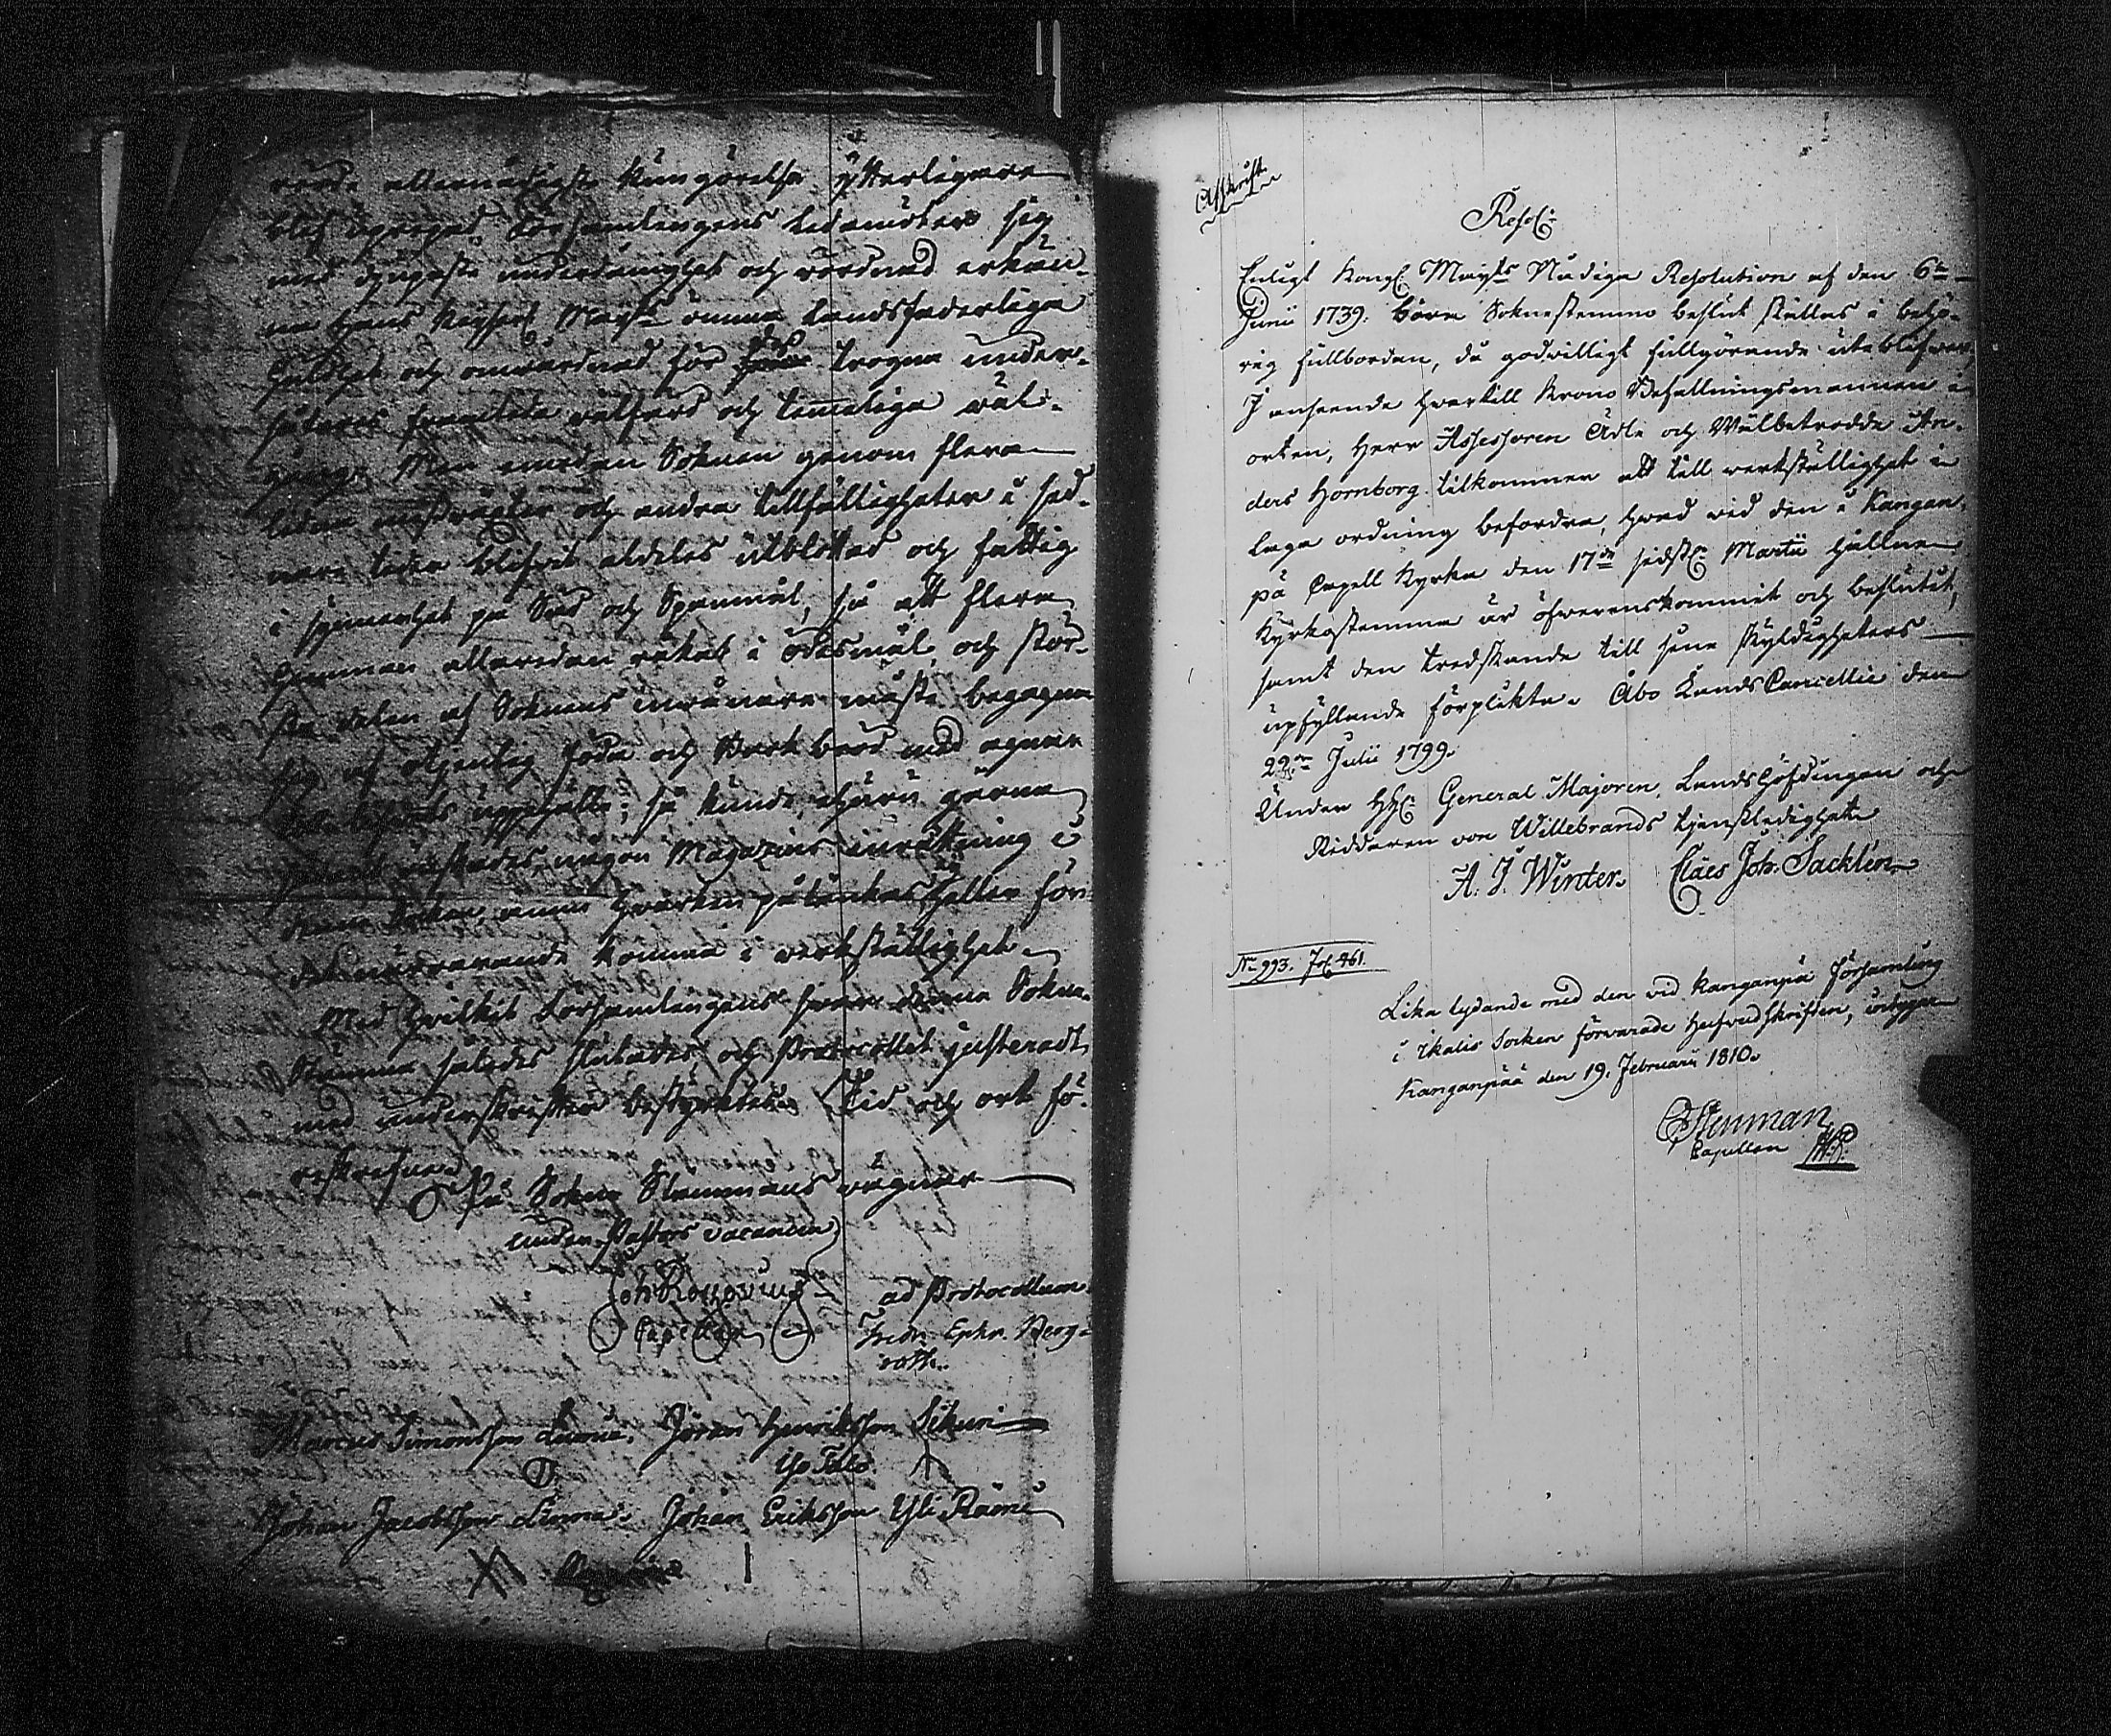 rörde allernådigste kungörelse ytterligare
blef upropad Församlingens ledamöter sig
med djupaste underdånighet och vördnad erkän-
na Hans Keyserl. Mayts ömma Landsfaderliga
huldhet och omvårdnad för des trogna under-
såtares framtida välfärd och timeliga väl-
gång. Men emedan Soknen genom flera
lidna missväxter och andra tillfälligheter i sed-
nare tider blifvit aldeles utblottad och fattig
i synnerhet på Säd och Spanmål, så att flera
Hemman allaredan råkat i ödesmål, och stör-
sta delen af Soknens invånare måste begagna
sig af otjenlig föda och Bark bröd med agnar
uppehälle; så kunde häru gärna
någon Magazins inrättning i
denna Socken, ännu hvarken påtänkas eller för
det närvarande komma i verkställighet.
Med hvilket Församlingens svar denna Sokne-
Stämma således slutades och Protocollet justeradt,
med underskrifter bestyrktes. Tid och ort fö-
reskrefne.
På Sokne Stämmans vägnar
under Pastors vacancen
Joh Roupovius
Capellan
ad Protocollum
Fredr. Ephr. Berg-
roth.
Marcus Simonsson Luoma. Jöran Henriksson Sikuri
Iso Talo
Johan Jacobsson Luoma. Johan Eriksson Yli Rämi
Afskrift
Resol:
Enligt Kongl. Mayts Nådiga Resolution af den 6te
Junii 1739. böra Soknestemmo beslut ställas i behö-
rig fullbordan, då godwilligt fullgörande uteblifwer.
I anseende hwartill Krono Befallningsmannen i
orten, Herr Assessoren Ädle och Wälbetrodde An-
ders Hornborg tilkommer att till werkställighet i
laga ordning befordra, hwad wid den i Kangan-
pä Capell Kyrka den 17de sidstl. Martii hållne
Kyrkostemma är öfwerenskommit och beslutit,
samt den tredskande till sine skyldigheters
upfyllande förplikta. Åbo LandsCancellie den
22re Julii 1799.
Under HH: General Majoren, Landshöfdingen och
Riddaren von Willebrands tjenstledighet
A. J. Winter. Claes Joh. Sacklén
No 993. Fol. 461.
Lika lydande med den wid Kanganpä Församling
i Ikalis Socken förwarade Hufwudskriften, intygar
Kanganpää den 19. Februarii 1810.
Stenman
Capellan